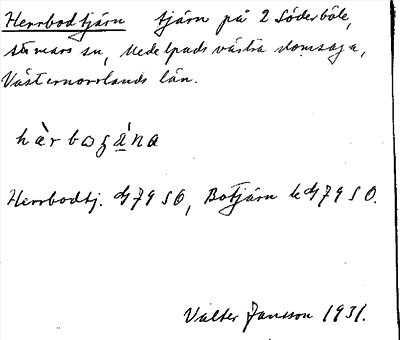 Herrbodtjärn tjärn på 2 Söderböle,
Stömars sn, Medelpads västra domsaga,
Västernorrlands län.
hàrbogána
Herrbodtj. dj 79 SO, Botjärn k dj 79 SO.
Valter Jansson 1931.